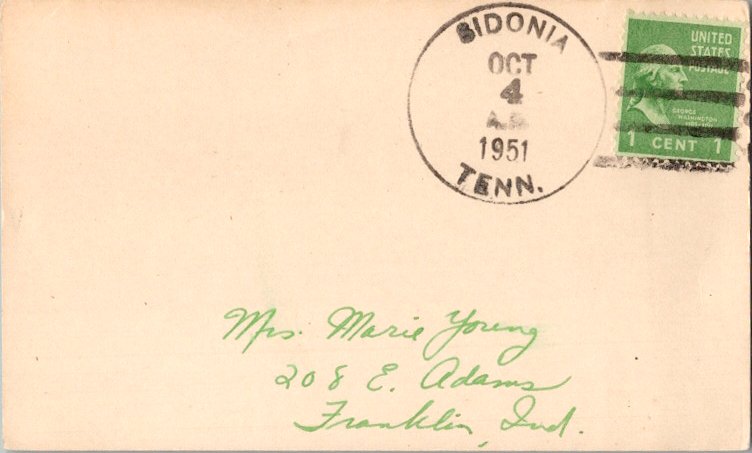 SIDONIA
OCT
4
A.M.
1951
TENN.
UNITED
STATES
POSTAGE
GEORGE
WASHINGTON
1 CENT 1
Mrs. Marie Young
208 E. Adams
Franklin, Ind.